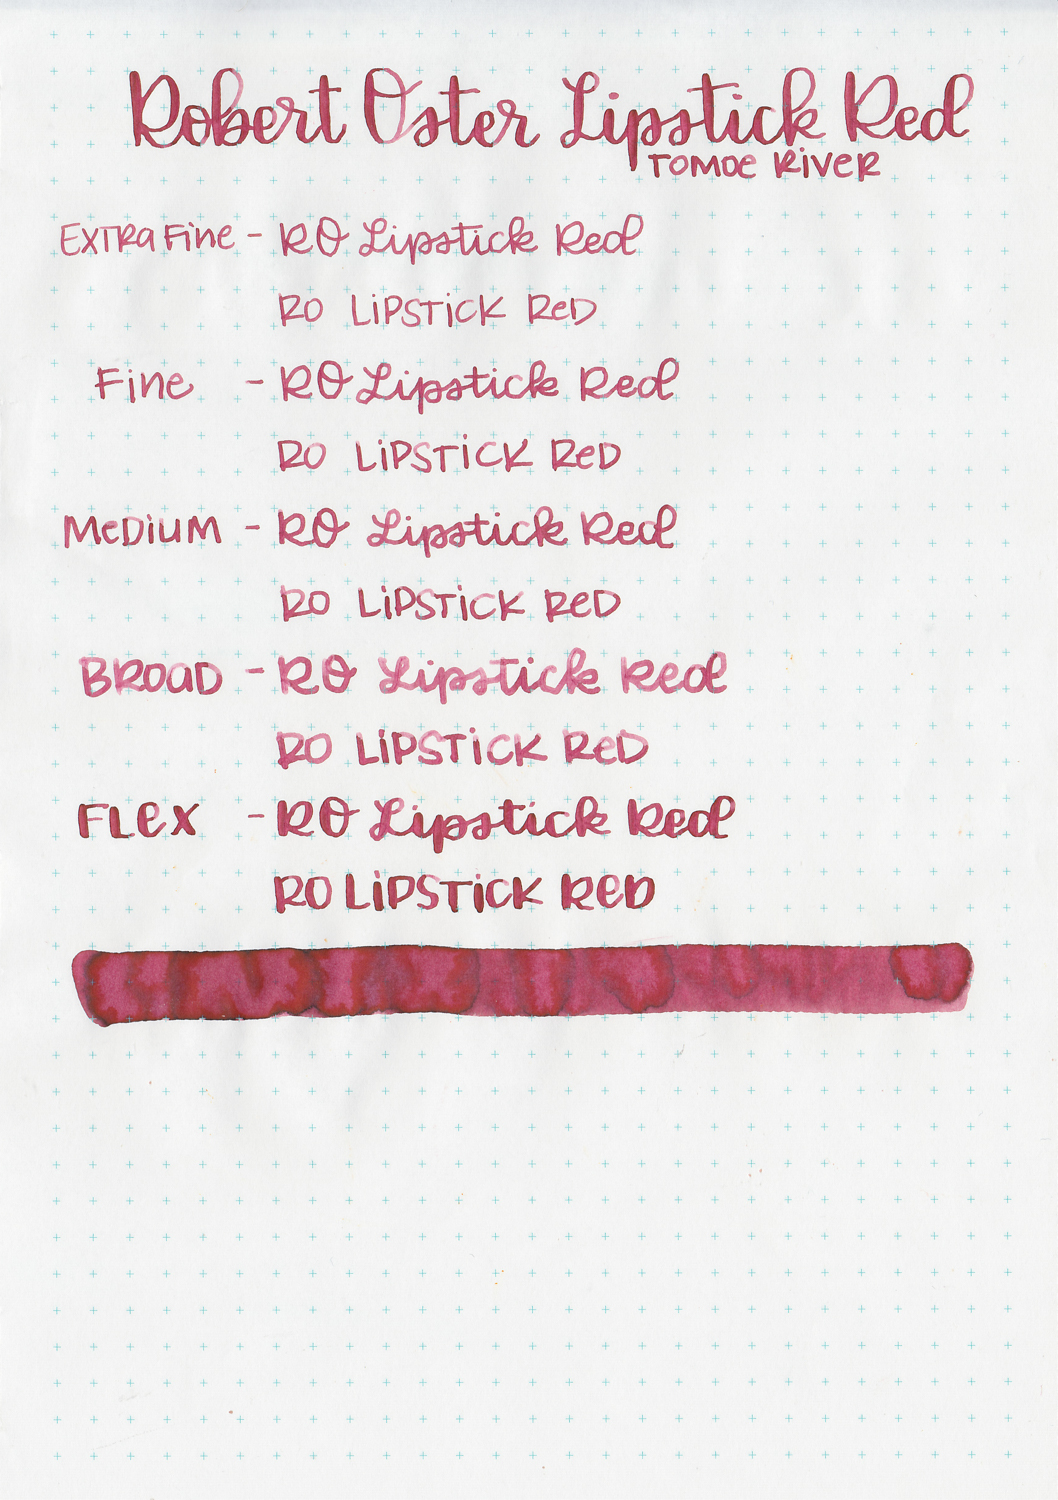 Robert Oster Lipstick Red
TOMOE RIVER
EXTRA Fine - RO Lipstick Red
RO LiPSTiCK ReD
Fine - RO Lipstick Red
RO LiPSTiCK ReD
MeDiUM - RO Lipstick Red
RO LiPSTiCK ReD
BROAD - RO Lipstick Red
RO LiPSTiCK ReD
FLex - RO Lipstick Red
RO LiPSTiCK ReD